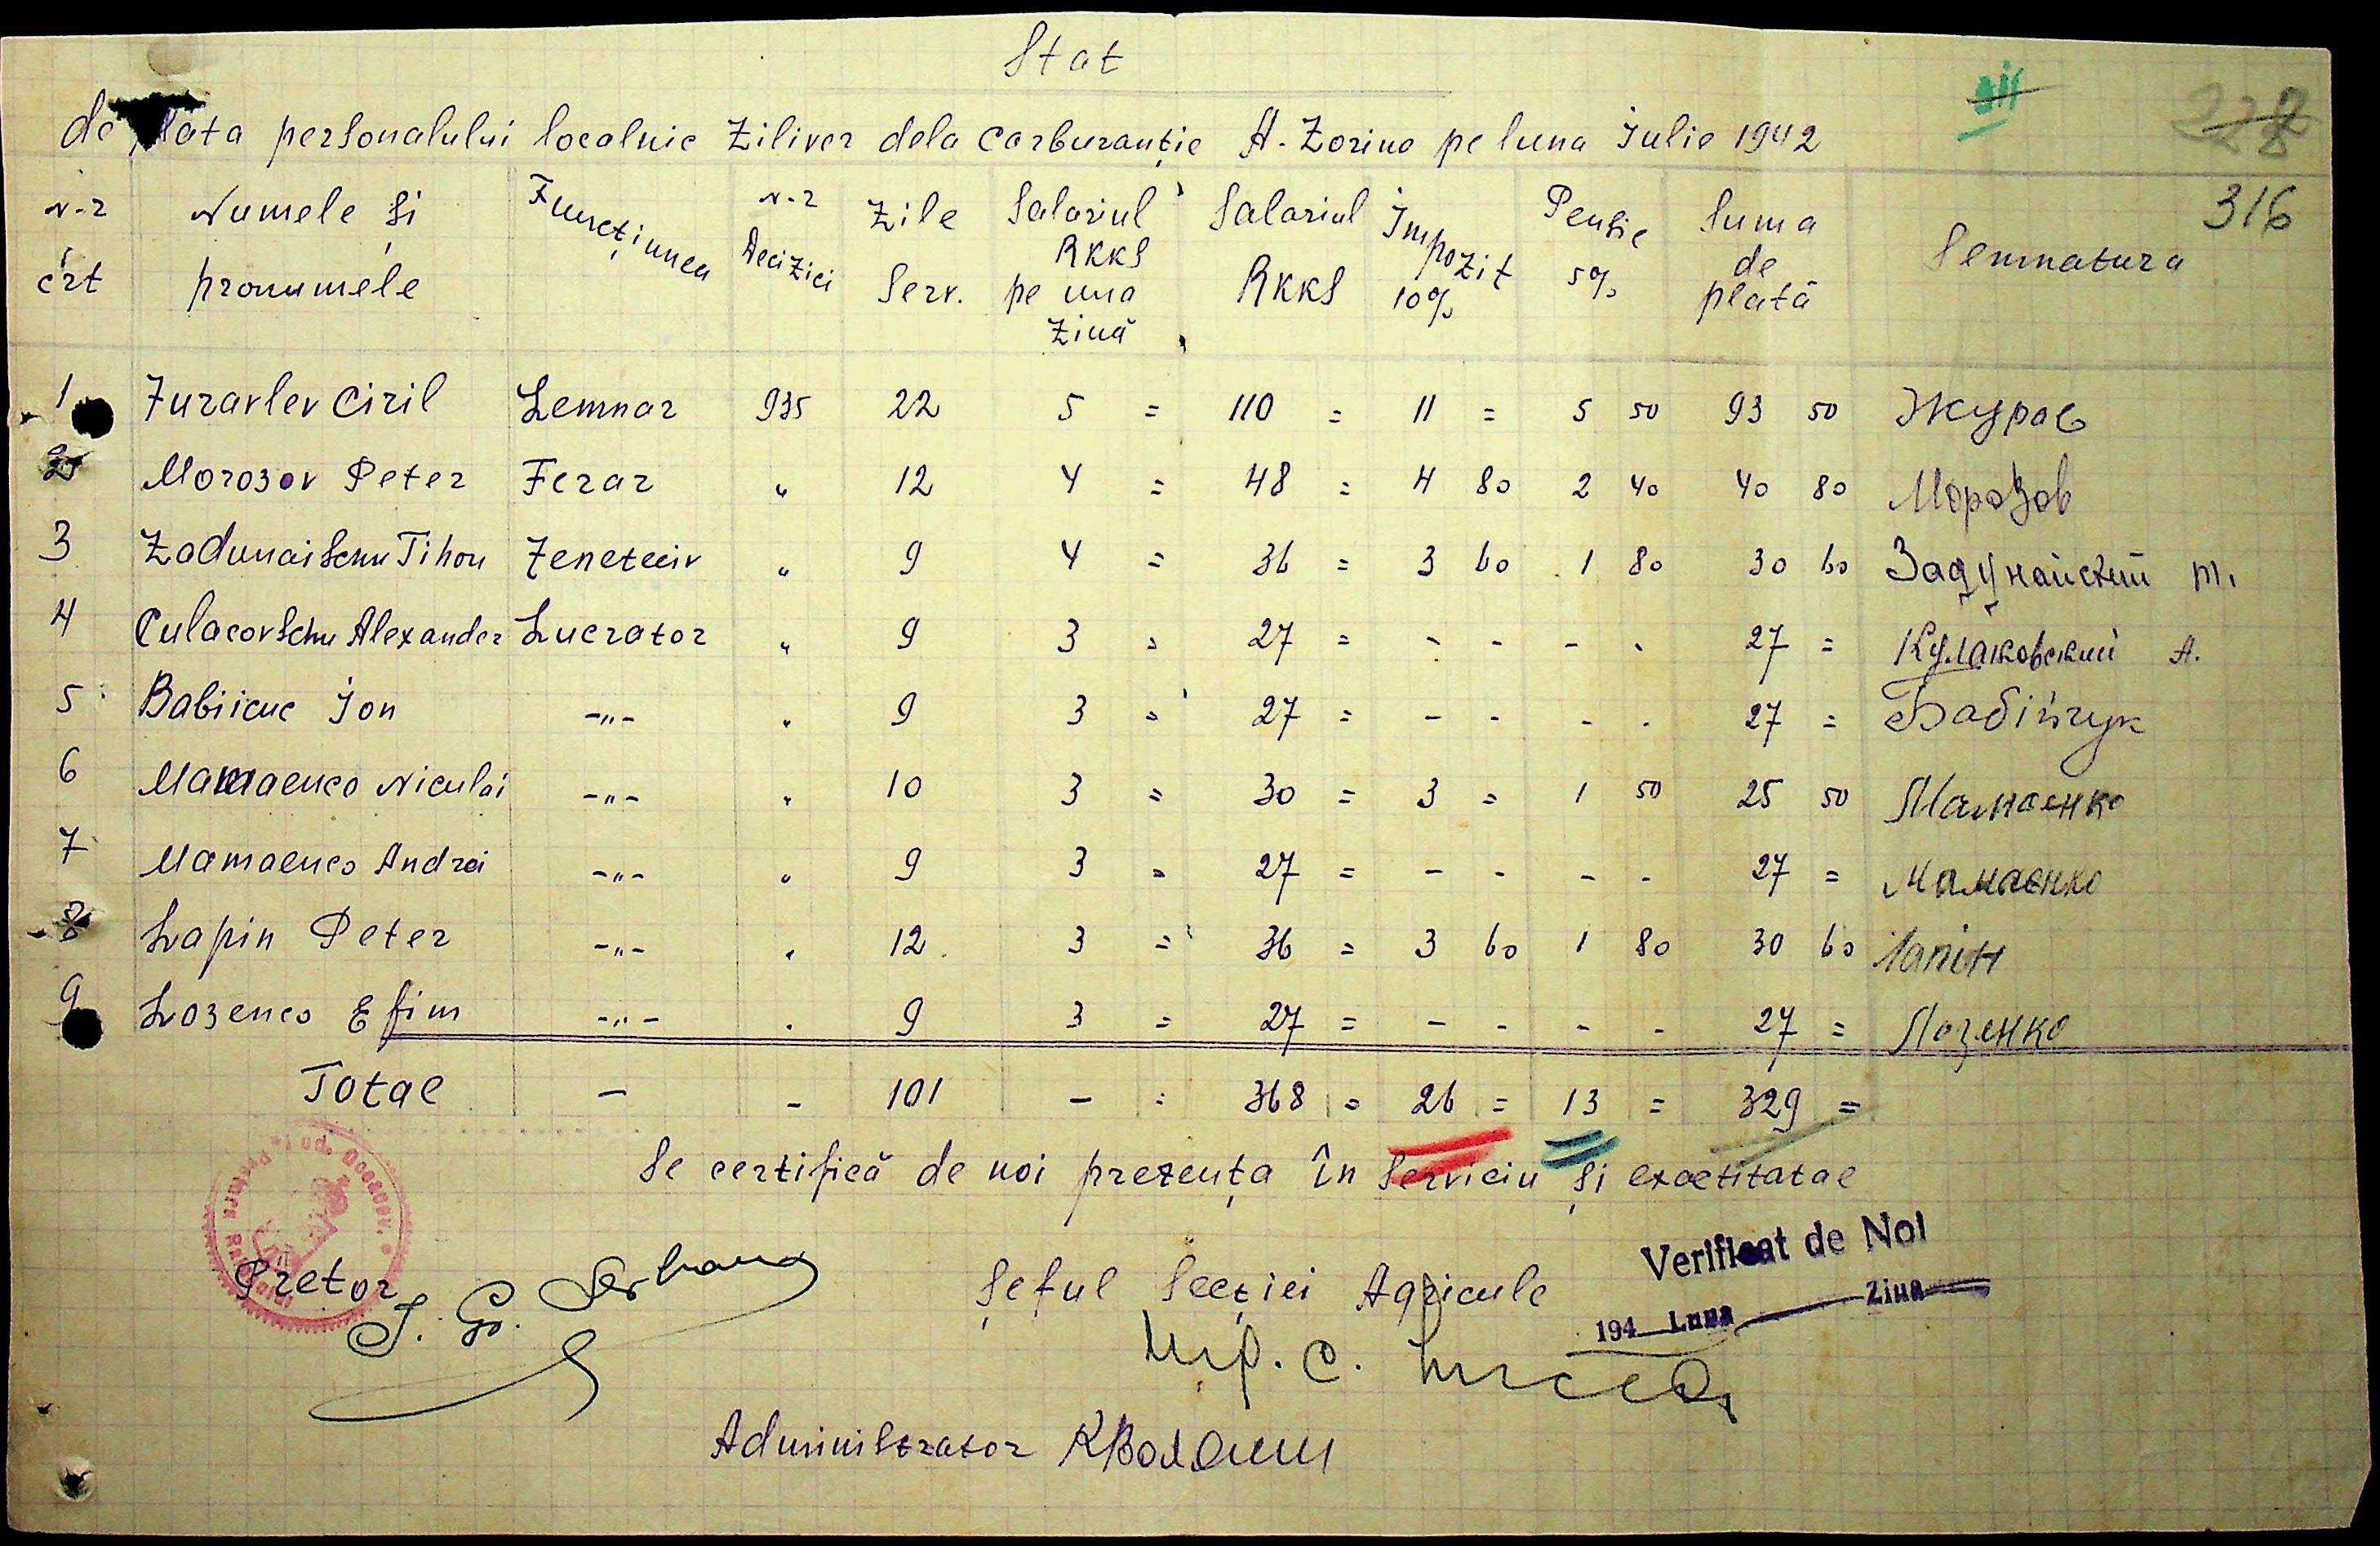 Stat
de plata personalului localnic Zilier dela Carburanție A. Zorino pe luna Iulie 1942
228
316
N-r crt Numele și pronumele Funcțiunea N-r Decizici Zile Serv. Salariul RKKS pe una ziuă Salariul RKKS Impozit 10% Pensie 5% Suma de plată Semnatura
1 Juravlev Ciril Lemnar 935 22 5 = 110 = 11 = 5 50 93 50 Журав
2 Morozov Peter Ferar " 12 4 = 48 = 4 80 2 40 40 80 Морозов
3 Zadunaischii Tihon " 9 4 = 36 = 3 60 1 80 30 60 Задунайский т.
4 Culacovschii Alexander Lucrator " 9 3 = 27 = - - - - 27 = Кулаковский А.
5 Babiiciuc Ion -"- " 9 3 = 27 = - - - - 27 = Бабійчук
6 Mamaenco Niculai -"- " 10 3 = 30 = 3 = 1 50 25 50 Мамаенко
7 Mamaenco Andrei -"- " 9 3 = 27 = - - - - 27 = Мамаенко
8 Lapin Peter -"- " 12 3 = 36 = 3 60 1 80 30 60 Лапін
9 Lozenco Efim -"- " 9 3 = 27 = - - - - 27 = Лозенко
Total - - 101 - = 368 = 26 = 13 = 329 =
Se certifică de noi prezența în serviciu și exactitatae
Verificat de Noi
194 Luna Ziua
Pretor
Șeful Secției Agricule
Administrator